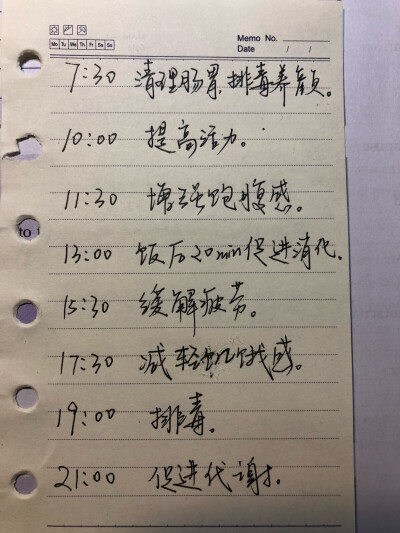 Memo No.
Mo Tu We Th Fr Sa Su
Date / /
7:30 清理肠胃,排毒养颜。
10:00 提高活力。
11:30 增强饱腹感。
to
13:00 饭后20min促进消化.
15:30 缓解疲劳。
17:30 减轻饥饿感。
19:00 排毒。
21:00 促进代谢.